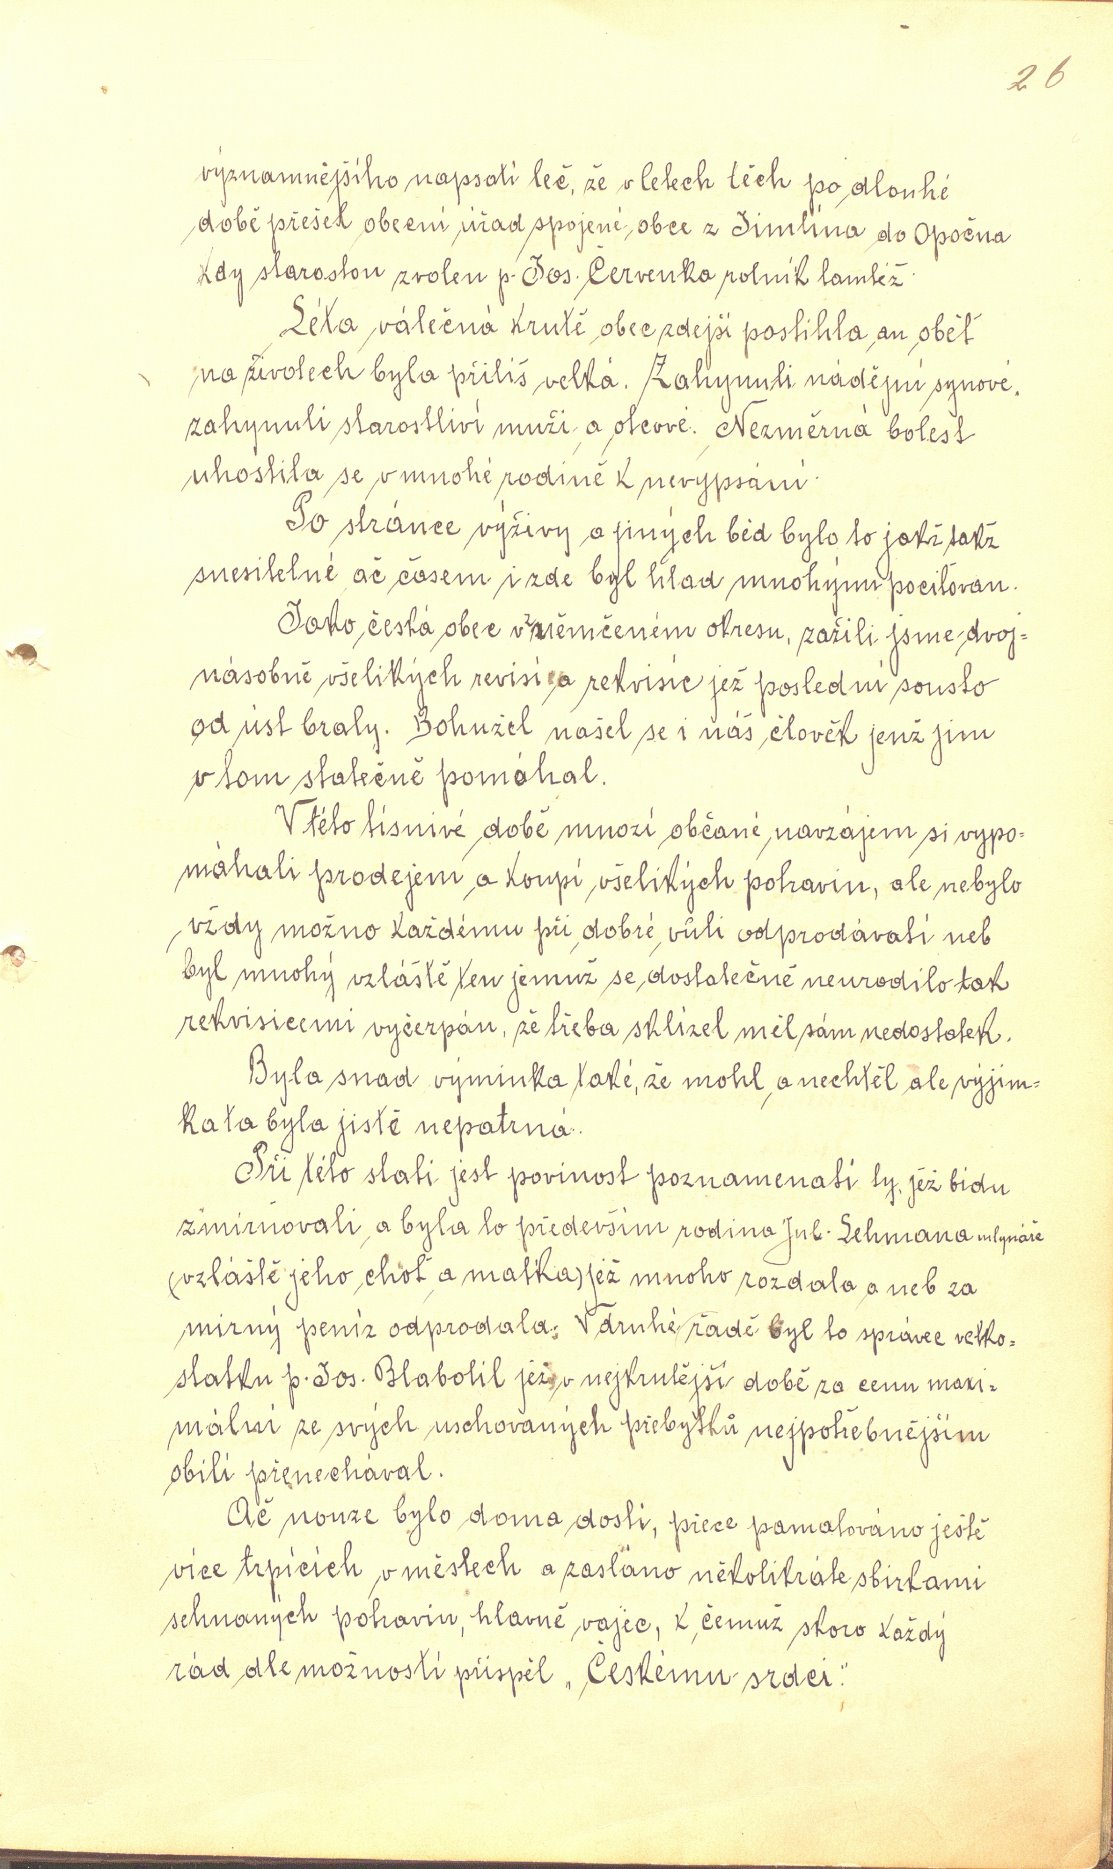 26
významnějšího napsati leč, že v letech těch po dlouhé
době přešel obecní úřad spojené obce z Jimlína do Opočna
kdy starostou zvolen p. Jos. Červenka rolník tamtéž.
Léta válečná krutě obec zdejší postihla, an oběť
na životech byla příliš velká. Zahynuli nádějní synové,
zahynuli starostliví muži a otcové. Nezměrná bolest
uhostila se v mnohé rodině k nevypsání.
Po stránce výživy a jiných běd bylo to jakž takž
snesitelné ač časem i zde byl hlad mnohými pociťován.
Jako česká obec v zněmčeném okresu, zažili jsme dvoj=
násobně všelikých revisí a rekvisic jež poslední sousto
od úst braly. Bohužel našel se i náš člověk jenž jim
v tom statečně pomáhal.
V této tísnivé době mnozí občané navzájem si vypo=
máhali prodejem a koupí všelikých potravin, ale nebylo
vždy možno každému při dobré vůli odprodávati neb
byl mnohý vzláště ten jemuž se dostatečně neurodilo tak
rekvisicemi vyčerpán, že třeba sklízel měl sám nedostatek.
Byla snad výminka také, že mohl a nechtěl ale výjim=
ka ta byla jistě nepatrná.
Při této stati jest povinost poznamenati ty, jež bídu
zmírňovali a byla to především rodina Jul. Lehmana mlynáře
(vzláště jeho choť a matka) jež mnoho rozdala a neb za
mírný peníz odprodala. V druhé řadě byl to správce velko=
statku p. Jos. Blabolil jež v nejkrutější době za cenu maxi=
mální ze svých uschovaných přebytků nejpotřebnějším
obilí přenechával.
Ač nouze bylo doma dosti, přece pamatováno ještě
více trpících v městech a zasláno několikráte sbírkami
sehnaných potravin, hlavně vajec, k čemuž skoro každý
rád dle možnosti přispěl „Českému srdci".